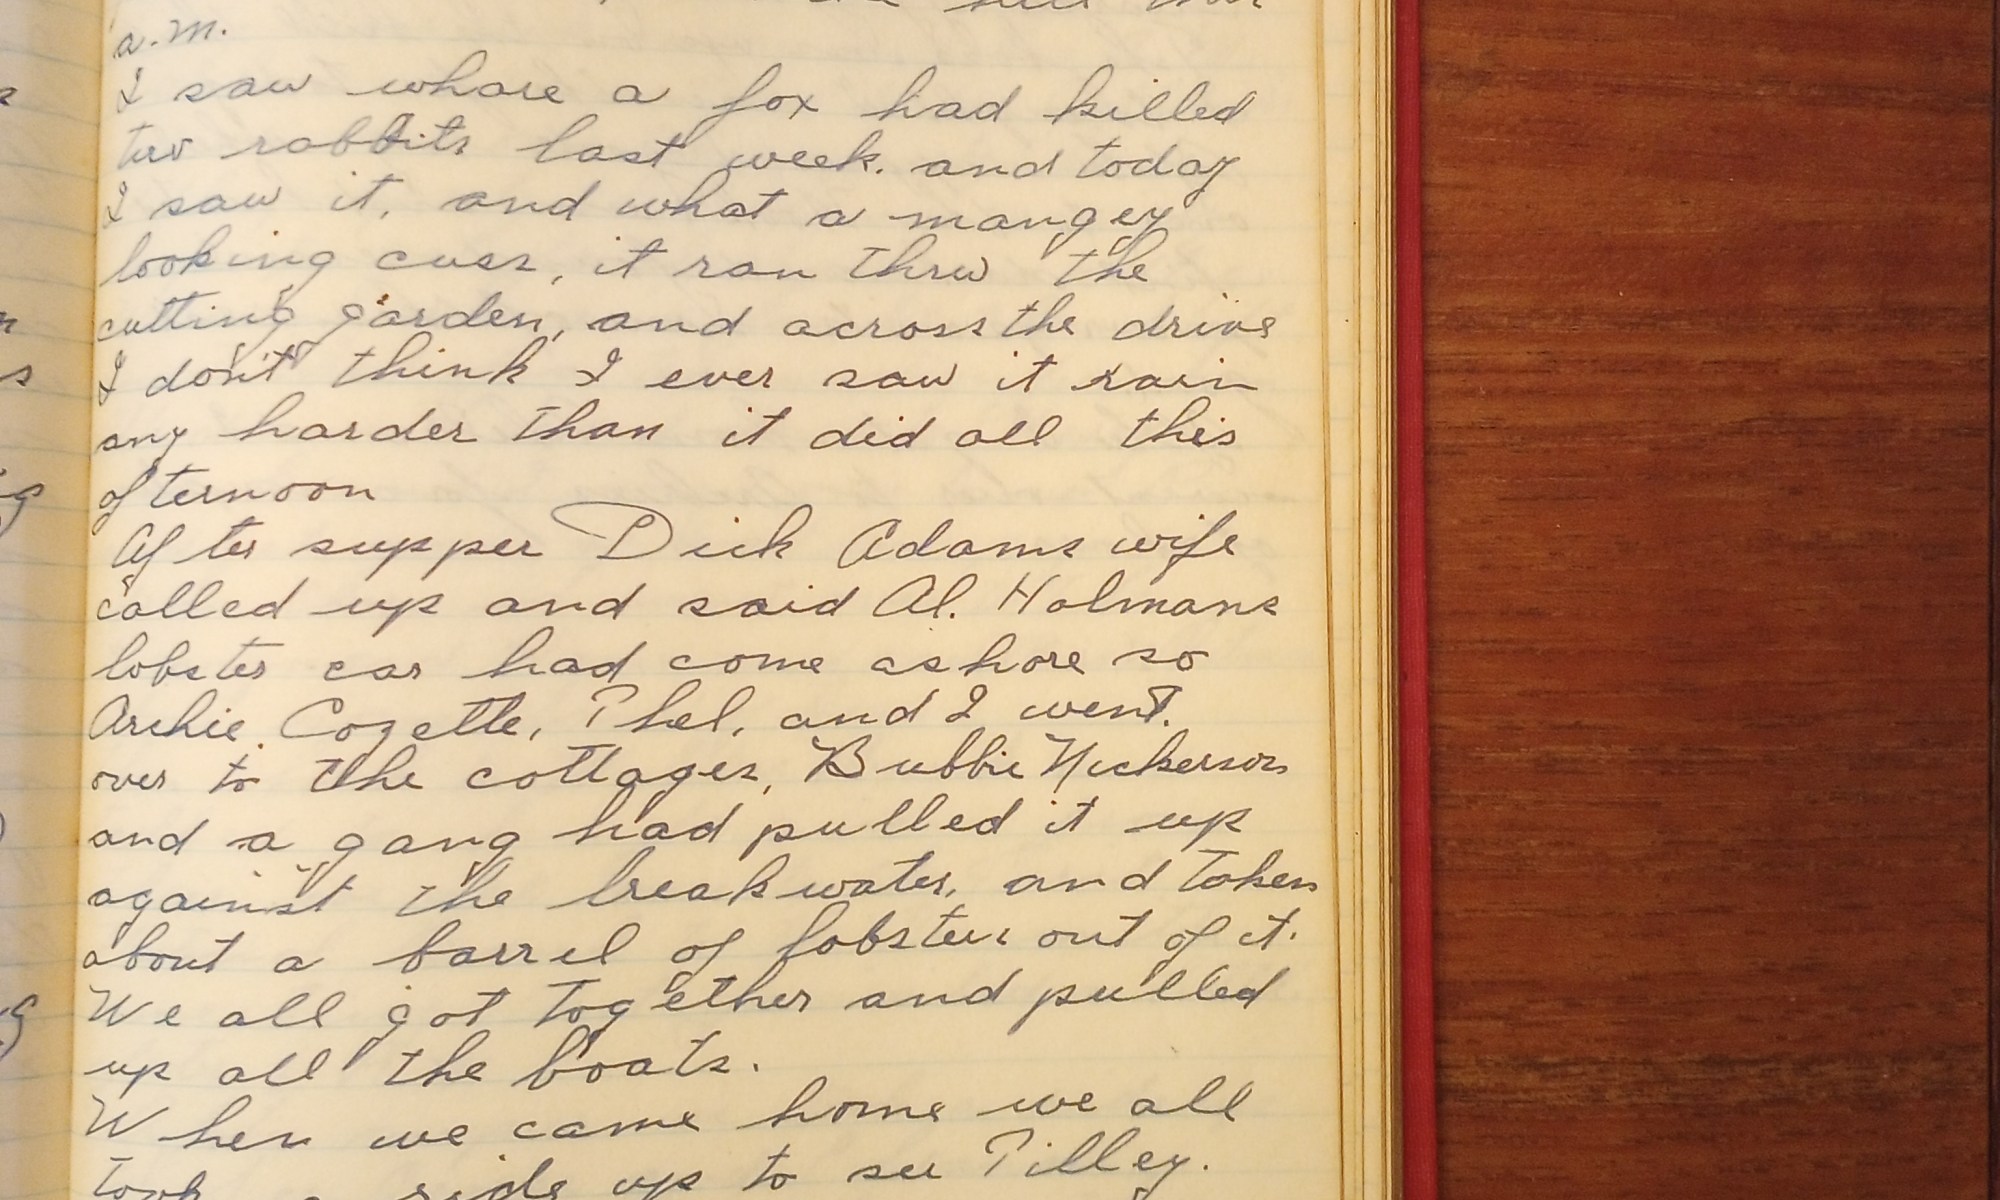 a.m.
I saw whare a fox had killed
two rabbits last week. and today
I saw it, and what a mangey
looking cuss, it ran thru the
cutting garden, and across the drive
I don't think I ever saw it rain
any harder than it did all this
afternoon
After supper Dick Adams wife
called up and said Al. Holmans
lobster car had come ashore so
Archie, Cozette, Phel, and I went.
over to the cottages, Bubbie Nickerson
and a gang had pulled it up
against the breakwater, and taken
about a barrel of lobsters out of it.
We all got together and pulled
up all the boats.
When we came home we all
took a ride up to see Tilley.